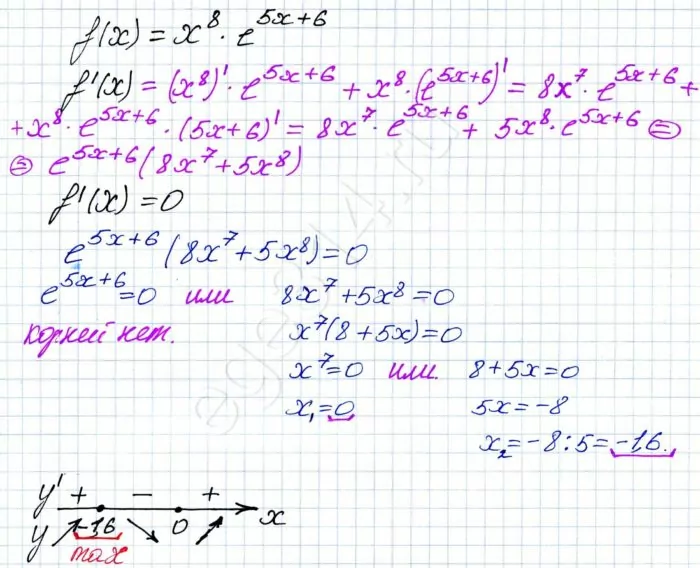 f(x) = x⁸ · e⁵ˣ⁺⁶
f'(x) = (x⁸)' · e⁵ˣ⁺⁶ + x⁸ · (e⁵ˣ⁺⁶)' = 8x⁷ · e⁵ˣ⁺⁶ +
+ x⁸ · e⁵ˣ⁺⁶ · (5x+6)' = 8x⁷ · e⁵ˣ⁺⁶ + 5x⁸ · e⁵ˣ⁺⁶ =
= e⁵ˣ⁺⁶ (8x⁷ + 5x⁸)
f'(x) = 0
e⁵ˣ⁺⁶ (8x⁷ + 5x⁸) = 0
e⁵ˣ⁺⁶ = 0 или 8x⁷ + 5x⁸ = 0
корней нет. x⁷(8 + 5x) = 0
x⁷ = 0 или 8 + 5x = 0
x₁ = 0 5x = -8
x₂ = -8 : 5 = -1,6.
y' + - +
-1,6 0 x
y
max
ege314.ru